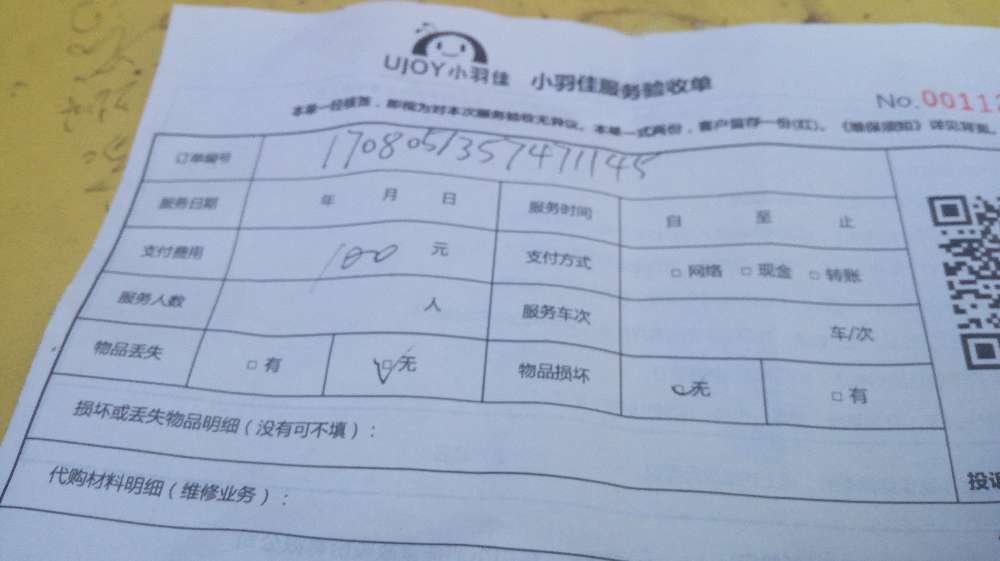 UJOY小羽佳 小羽佳服务验收单
No.0011
本单一经核签，即视为对本次服务验收无异议。本单一式两份，客户留存一份(红)。《维保须知》详见背面。
订单编号 1708051357471145
服务日期 年 月 日 服务时间 自 至 止
支付费用 100 元 支付方式 □ 网络 □ 现金 □ 转账
服务人数 人 服务车次 车/次
物品丢失 □ 有 □ 无 物品损坏 □ 无 □ 有
损坏或丢失物品明细（没有可不填）：
代购材料明细（维修业务）：
投诉